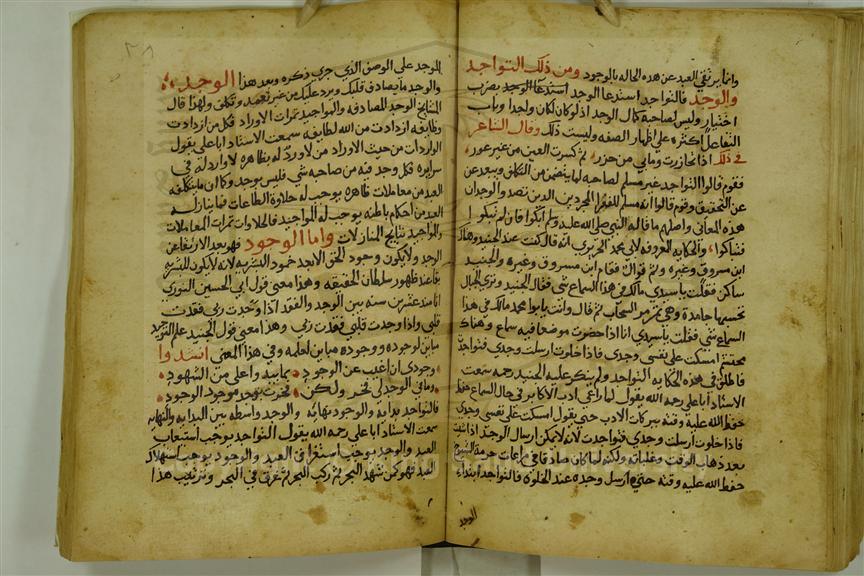 وانما يرتقي العبد عن هذه الحاله بالوجود ومن ذلك التواجد
والوجد فالتواجد استدعا الوجد استدعا الوجد بضرب
اختيار وليس لصاحبه كمال الوجد اذ لو كان لكان واجدا وباب
التفاعل اكثره على اظهار الصفه وليست ذلك وقال الشاعر
في ذلك اذا تخازرت وما بي من خزر ثم كسرت العين من غير عور
فقوم قالوا التواجد غير مسلم لصاحبه لما يتضمن من التكلف ويبعد عن
عن التحقيق وقوم قالوا انه مسلم للفقرا المجردين الذين ترصد والوجدان
هذه المعاني واصلهم ما قاله النبي صلى الله عليه وسلم ابكوا فان لم تبكوا
فتباكوا والحكايه المعروفه لابي محمد الجريري انه قال كنت عند الجنيد وهناك
ابن مسروق وغيره وثم قوال فقام ابن مسروق وغيره والجنيد
ساكن فقلت يا سيدي مالك في هذا السماع شي فقال الجنيد وترى الجبال
تحسبها جامدة وهي تمر مر السحاب ثم قال وانت يا با محمد مالك في هذا
السماع شي فقلت يا سيدي انا اذا حضرت موضعا فيه سماع وهناك
محتشم امسكت على نفسي وجدي فاذا خلوت ارسلت وجدي فتواجدت
فاطلق في هذه الحكايه التواجد ولم ينكر عليه الجنيد رحمه سمعت
الاستاذ ابا علي رحمه الله يقول لما راعى ادب الاكابر في حال السماع حفظ
حفظ الله عليه وقته ببركات الادب حتى يقول امسكت على نفسي وجدي
فاذا خلوت ارسلت وجدي فتواجدت لانه لا يمكن ارسال الوجد اذا شئت
بعد ذهاب الوقت وغلباته ولكنه لما كان صادقا في مراعات حرمة الشيوخ
حفظ الله عليه وقته حتى ارسل وجده عند الخلوة فالتواجد ابتداء
الوجد
للوجد على الوصف الذي جري ذكره وبعد هذا الوجد
والوجد ما يصادف قلبك ويرد عليك من غير تعمد وتكلف ولهذا قال
المشايخ الوجد المصادفه والمواجيد ثمرات الاوراد فكل من ازدادت
وظايفه ازدادت من الله لطايفه سمعت الاستاد ابا علي يقول
الواردات من حيث الاوراد من لا ورد له بظاهره لا وارد له في
سرايره وكل وجد فيه من صاحبه شي فليس بوجد وكما ان ما يتكلفه
العبد من معاملات ظاهره يوجب له حلاوة الطاعات فما ينازله
العبد من احكام باطنه يوجب له المواجيد فالحلاوات ثمرات المعاملات
والمواجيد نتايج المنازلات واما الوجود فهو بعد الارتقا عن
الوجد ولا يكون وجود الحق الا بعد خمود البشريه لانه لا يكون للبشريه
بقا عند ظهور سلطان الحقيقه وهذا معنى قول ابي الحسين النوري
انا منذ عشرين سنه بين الوجد والفقد اذا وجدت ربي فقدت
قلبي واذا وجدت قلبي فقدت ربي وهذا معنى قول الجنيد علم التوحيد
مباين لوجوده ووجوده مباين لعلمه وفي هذا المعنى انشدوا
وجودي ان اغيب عن الوجود بما يبدو اعلى من الشهود
وما في الوجد لي فخر ولكن فخرت بوجد موجود الوجود
فالتواجد بدايه والوجود نهايه والوجد واسطه بين البدايه والنهايه
سمعت الاستاد ابا علي رحمه الله يقول التواجد يوجب استيعاب
العبد والوجد يوجب استغراق العبد والوجود يوجب استهلاك
العبد فهو كمن شهد البحر ثم ركب البحر ثم غرق في البحر وترتيب هذا